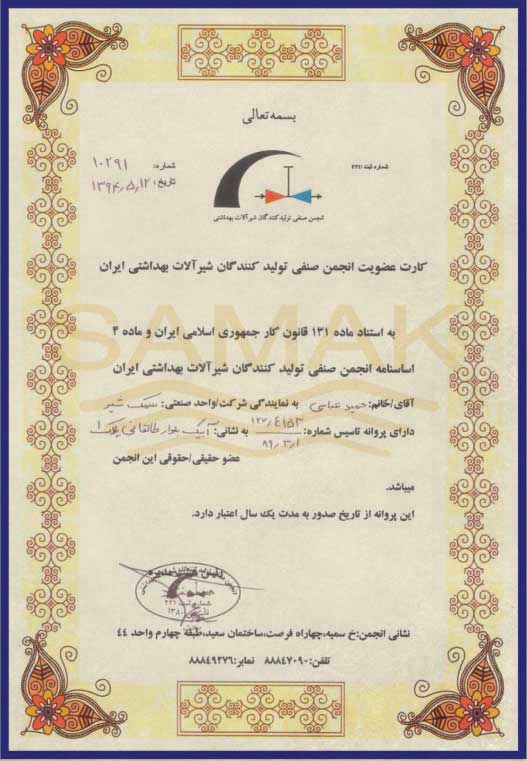 بسمه تعالی
شماره ثبت ۲۲۱
شماره: ۱۰۲۹۱
تاریخ: ۱۳۹۴٫۵٫۱۲
انجمن صنفی تولیدکنندگان شیرآلات بهداشتی
کارت عضویت انجمن صنفی تولید کنندگان شیرآلات بهداشتی ایران
SAMAK
به استناد ماده ۱۳۱ قانون کار جمهوری اسلامی ایران و ماده ۴
اساسنامه انجمن صنفی تولید کنندگان شیرآلات بهداشتی ایران
آقای/خانم: حمید عباسی به نمایندگی شرکت/واحد صنعتی: سمک شیر
دارای پروانه تاسیس شماره: ۱۲۷٫۴۱۵۳ ۸۹٫۳٫۱ به نشانی: آبیک بلوار طالقانی پلاک ۱
عضو حقیقی/حقوقی این انجمن
میباشد.
این پروانه از تاریخ صدور به مدت یک سال اعتبار دارد.
رئیس هیئت مدیره
شماره ثبت ۲۲۱
۱۳۸۰
نشانی انجمن:خ سمیه،چهاراه فرصت،ساختمان سعید،طبقه چهارم واحد ۴۴
تلفن:۸۸۸۴۷۰۹۰ نمابر:۸۸۸۴۹۲۷۶